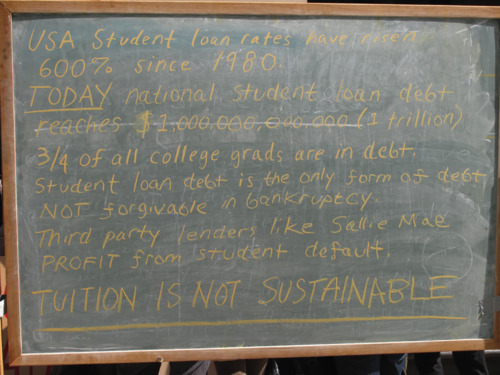 USA Student loan rates have risen
600% since 1980.
TODAY national student loan debt
reaches $1,000,000,000,000 (1 trillion)
3/4 of all college grads are in debt.
Student loan debt is the only form of debt
NOT forgivable in bankruptcy.
Third party lenders like Sallie Mae
PROFIT from student default.
TUITION IS NOT SUSTAINABLE